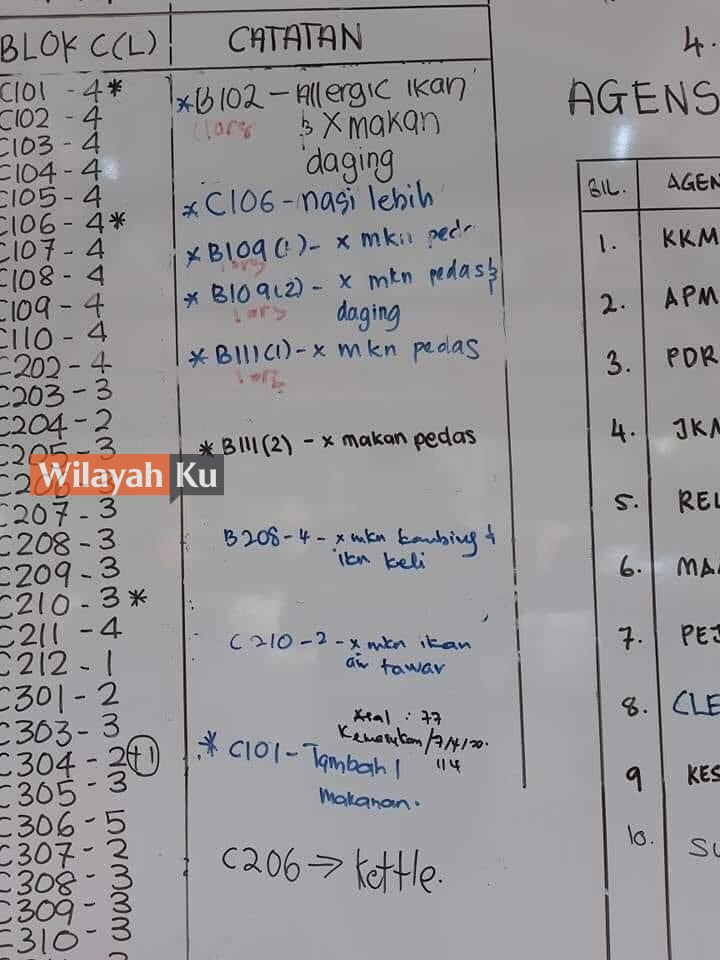 BLOK C(L)
C101 - 4*
C102 - 4
C103 - 4
C104 - 4
C105 - 4
C106 - 4*
C107 - 4
C108 - 4
C109 - 4
C110 - 4
C202 - 4
C203 - 3
C204 - 2
C205 - 3
C207 - 3
C208 - 3
C209 - 3
C210 - 3*
C211 - 4
C212 - 1
C301 - 2
C303 - 3
C304 - 2 +1
C305 - 3
C306 - 5
C307 - 2
C308 - 3
C309 - 3
C310 - 3
CATATAN
*B102 - Allergic ikan
1 org
& X makan
daging
* C106 - nasi lebih
* B109 (1) - x mkn
1 org
* B109 (2) - x mkn pedas &
1 org
daging
* B111 (1) - x mkn pedas
1 org
* B111 (2) - x makan pedas
B208-4 - x mkn kambing +
ikn keli
C 210 - 2 - x mkn ikan
air tawar
Asal : 77
Kemasukan/7/4/20.
114
* C101 - Tambah 1
makanan.
C206 → kettle.
4.
AGENS
BIL. AGEN
1. KKM
2. APM
3. PDR
4. JKM
5. REL
6. MA
7. PEJ
8. CLE
9 KES
10. SU
Wilayah Ku